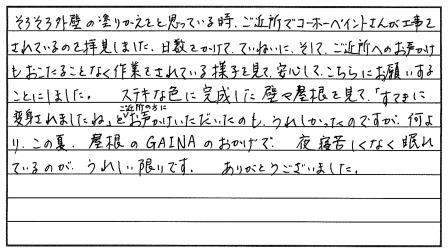 そろそろ外壁の塗りかえをと思っている時、ご近所でコーホーペイントさんが工事を
されているのを拝見しました。日数をかけて、ていねいに、そして、ご近所へのお声かけ
もおこたることなく作業をされている様子を見て、安心して、こちらにお願いする
ことにしました。 ステキな色に完成した壁や屋根を見て、「すてきに
ご近所の方に
変身されましたね」とお声かけいただいたのも、うれしかったのですが、何よ
り、この夏、屋根のGAINAのおかげで 夜寝苦しくなく眠れ
ているのが、うれしい限りです。 ありがとうございました。